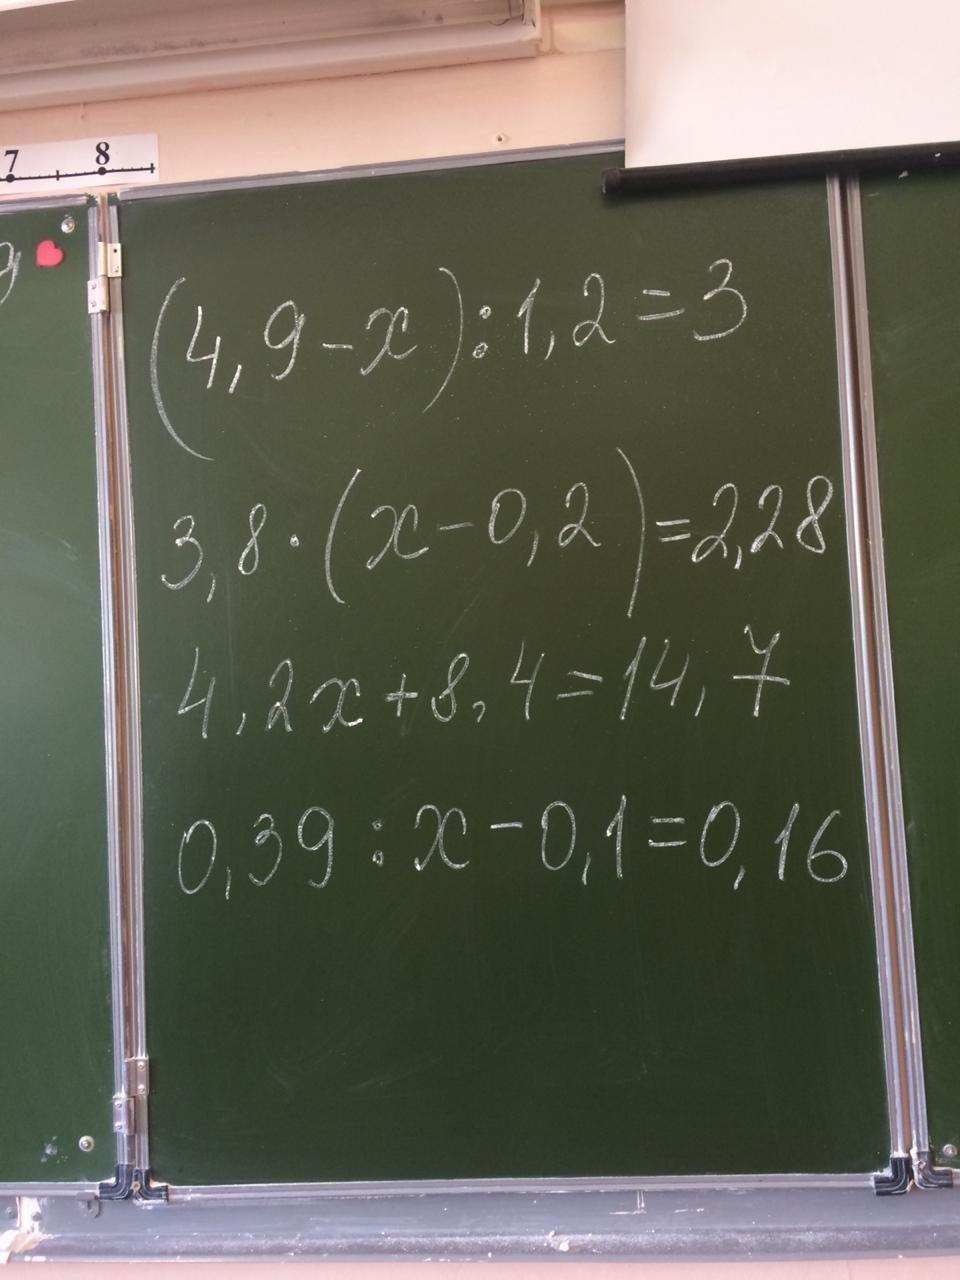 7 8
(4,9-x):1,2=3
3,8·(x-0,2)=2,28
4,2x+8,4=14,7
0,39:x-0,1=0,16